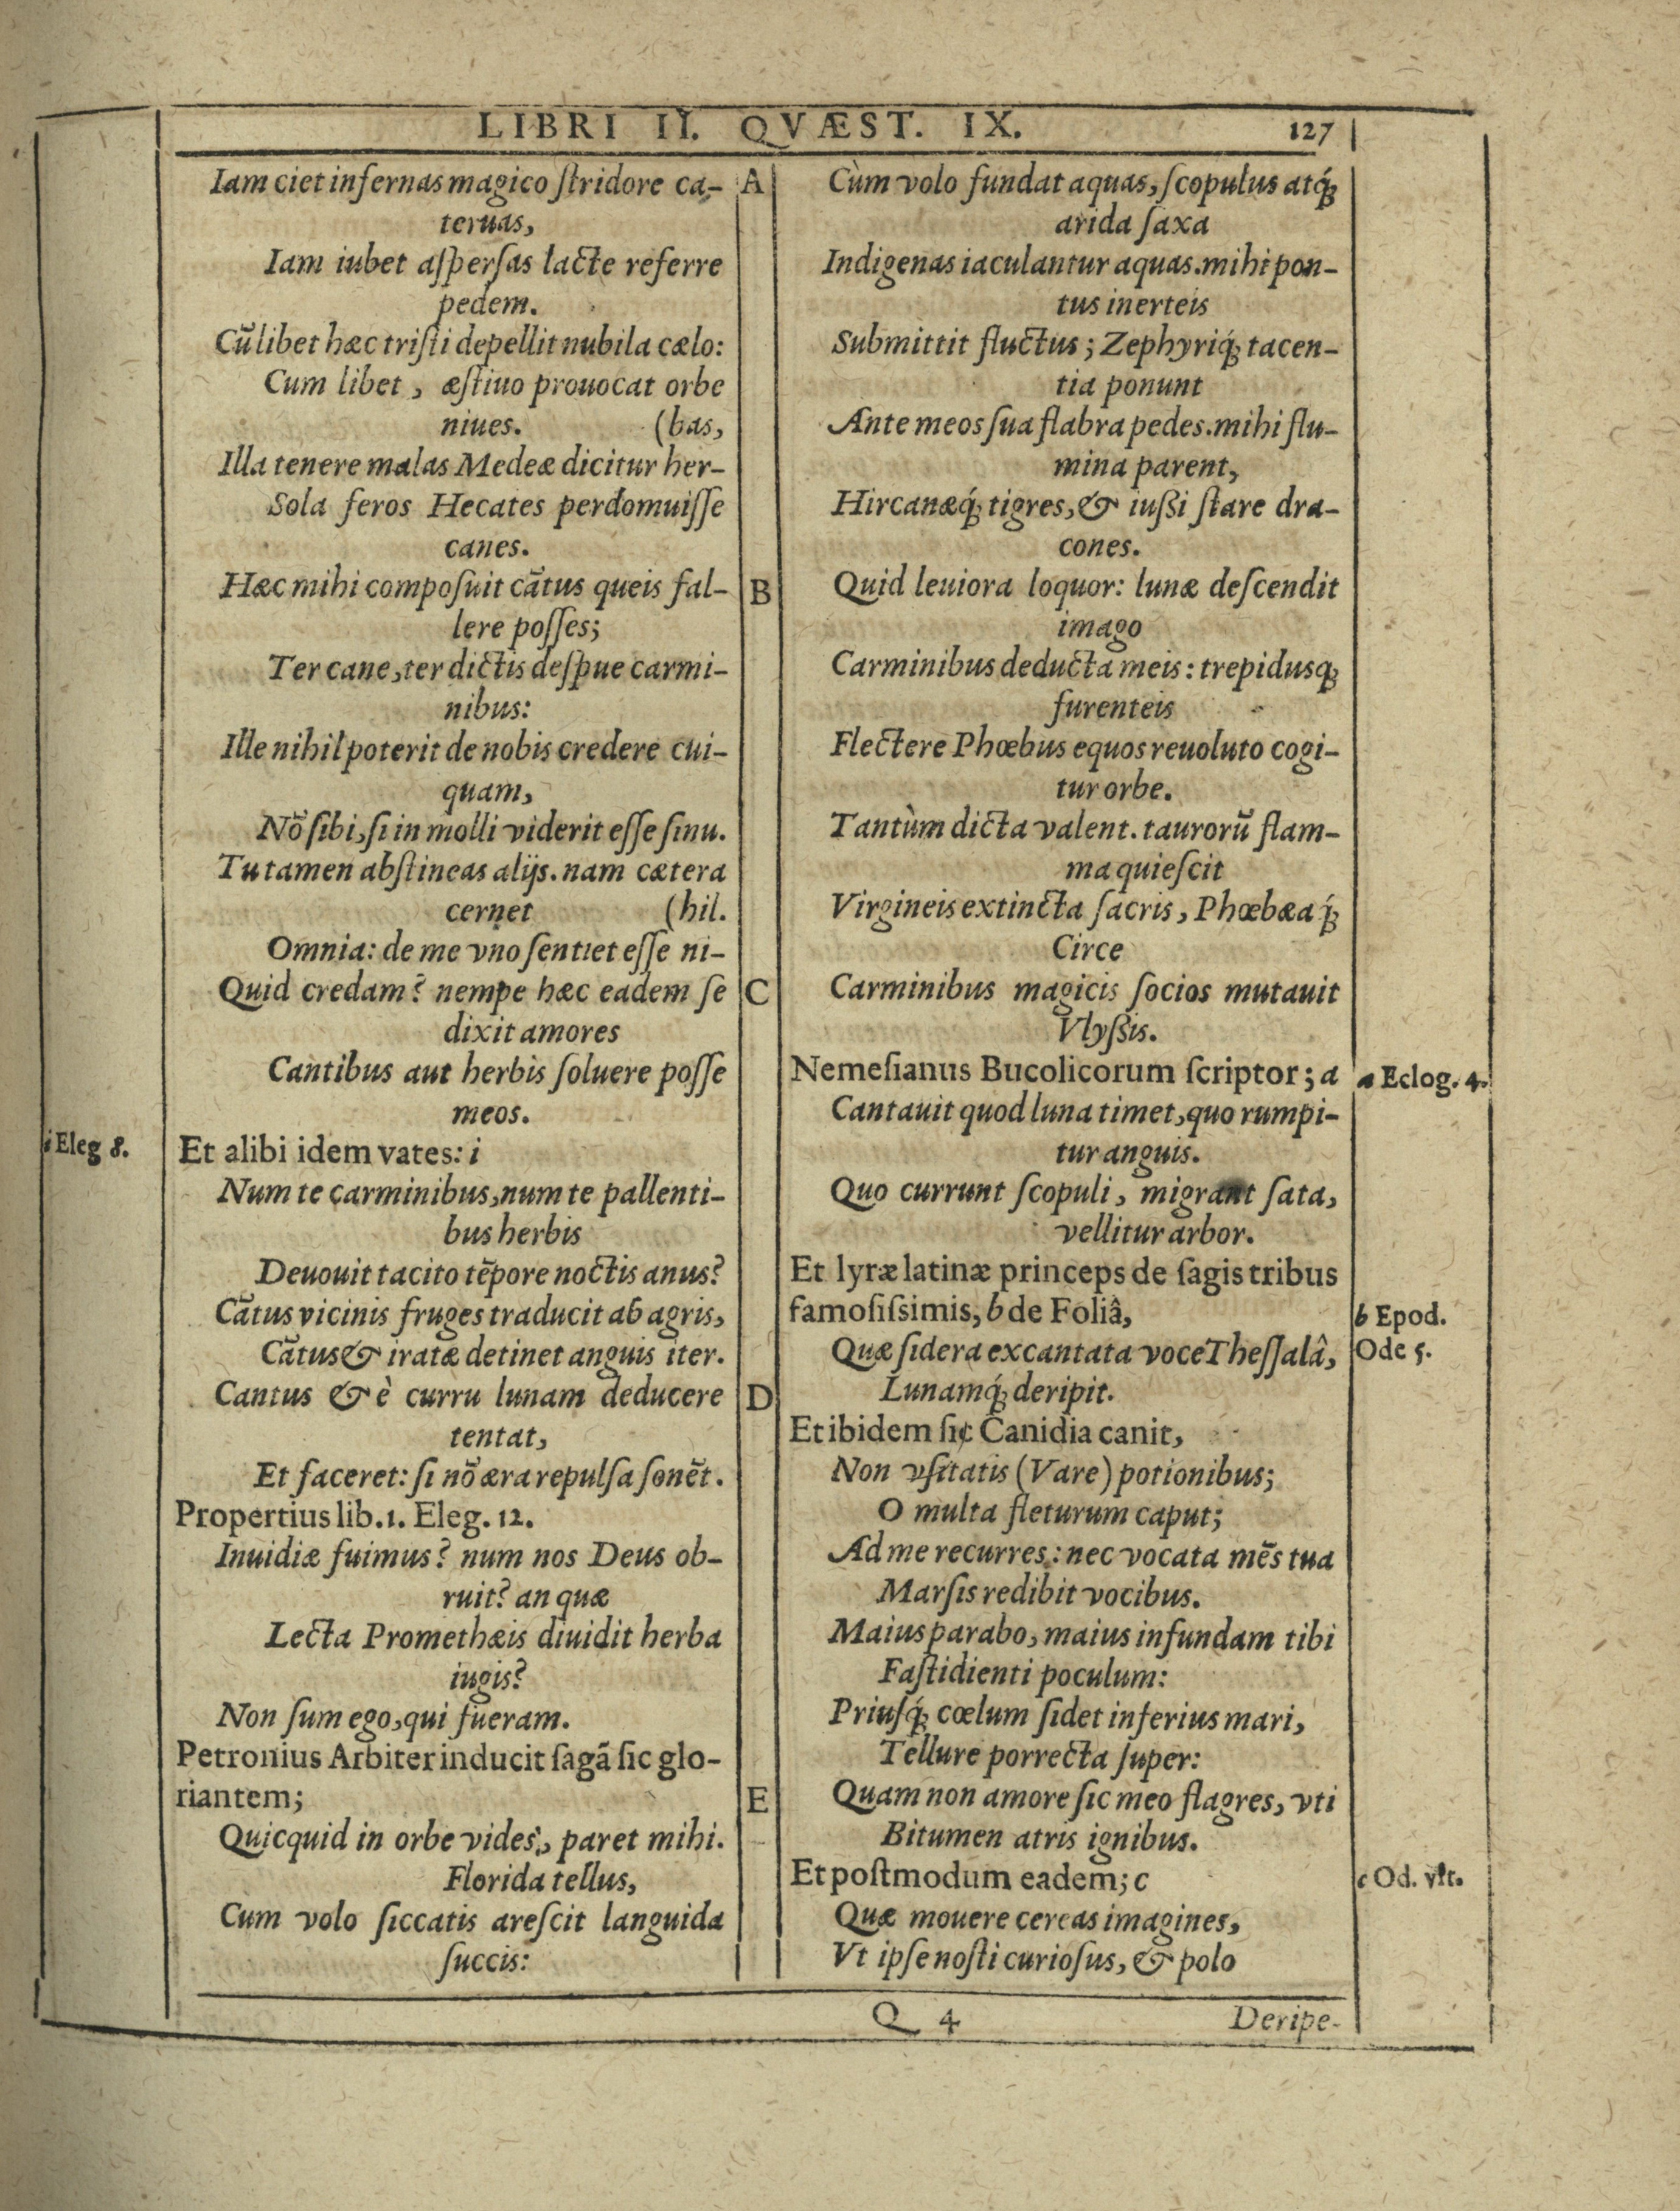 LIBRI II. QVÆST. IX. 127
Iam ciet infernas magico ſtridore ca-
teruas,
Iam iubet aſperſas lacte referre
pedem.
Cũ libet hæc triſti depellit nubila cælo:
Cum libet, æſtiuo prouocat orbe
niues. (bas,
Illa tenere malas Medeæ dicitur her-
Sola feros Hecates perdomuiſſe
canes.
Hæc mihi compoſuit cãtus queis fal-
lere poſſes;
Ter cane, ter dictis deſpue carmi-
nibus:
Ille nihil poterit de nobis credere cui-
quam,
Nõ ſibi, ſi in molli viderit eſſe ſinu.
Tu tamen abſtineas alijs. nam cætera
cernet (hil.
Omnia: de me vno ſentiet eſſe ni-
Quid credam? nempe hæc eadem ſe
dixit amores
Cantibus aut herbis ſoluere poſſe
meos.
i Eleg 8.
Et alibi idem vates: i
Num te carminibus, num te pallenti-
bus herbis
Deuouit tacito tẽpore noctis anus?
Cãtus vicinis fruges traducit ab agris,
Cãtus & iratæ detinet anguis iter.
Cantus & è curru lunam deducere
tentat,
Et faceret: ſi nõ æra repulſa ſonẽt.
Propertius lib. 1. Eleg. 12.
Inuidiæ fuimus? num nos Deus ob-
ruit? an quæ
Lecta Promethæis diuidit herba
iugis?
Non ſum ego, qui fueram.
Petronius Arbiter inducit ſagã ſic glo-
riantem;
Quicquid in orbe vides, paret mihi.
Florida tellus,
Cum volo ſiccatis areſcit languida
ſuccis:
A
B
C
D
E
Cùm volo fundat aquas, ſcopulus atq́;
arida ſaxa
Indigenas iaculantur aquas. mihi pon-
tus inerteis
Submittit fluctus; Zephyriq́; tacen-
tia ponunt
Ante meos ſua flabra pedes. mihi flu-
mina parent,
Hircanæq́; tigres, & iuſsi ſtare dra-
cones.
Quid leuiora loquor: lunæ deſcendit
imago
Carminibus deducta meis: trepidusq;
furenteis
Flectere Phœbus equos reuoluto cogi-
tur orbe.
Tantùm dicta valent. taurorũ flam-
ma quieſcit
Virgineis extincta ſacris, Phœbæa q́;
Circe
Carminibus magicis ſocios mutauit
Vlyſsis.
Nemeſianus Bucolicorum ſcriptor; a
a Eclog. 4.
Cantauit quod luna timet, quo rumpi-
tur anguis.
Quo currunt ſcopuli, migrant ſata,
vellitur arbor.
Et lyræ latinæ princeps de ſagis tribus
famoſiſsimis, b de Foliâ,
b Epod.
Ode 5.
Quæ ſidera excantata voce Theſſalâ,
Lunamq́; deripit.
Et ibidem ſic Canidia canit,
Non vſitatis (Vare) potionibus;
O multa fleturum caput;
Ad me recurres: nec vocata mẽs tua
Marſis redibit vocibus.
Maius parabo, maius infundam tibi
Faſtidienti poculum:
Priuſq́; cœlum ſidet inferius mari,
Tellure porrecta ſuper:
Quam non amore ſic meo flagres, vti
Bitumen atris ignibus.
Et poſtmodum eadem; c
c Od. vlt.
Quæ mouere cereas imagines,
Vt ipſe noſti curioſus, & polo
Q 4 Deripe-